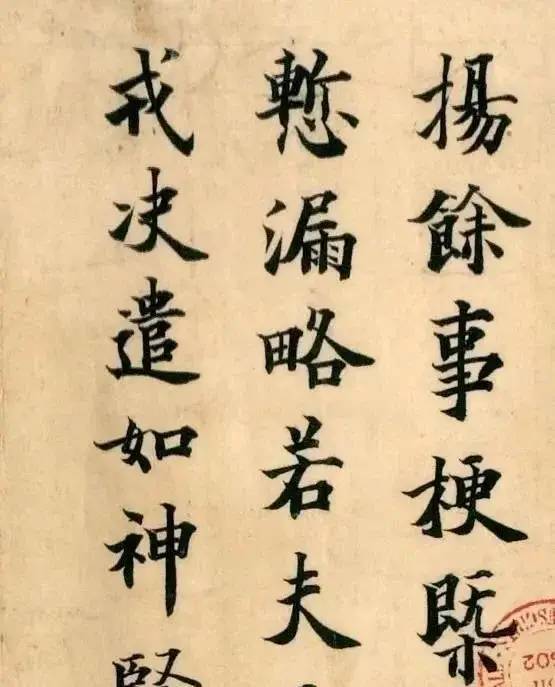 揚餘事梗槩
慙漏略若夫
戎决遣如神